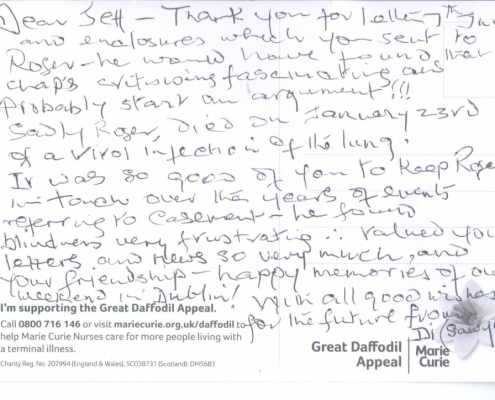 Dear Jeff - Thank you for letter
and enclosures which you sent to
Roger - he would have found that
chap's critisising fascinating and
Probably start an argument!!!
Sadly Roger, died on January 23rd
of a viral infection of the lung.
It was so good of you to keep Roger
in touch over the years of events
referring to Casement - he found
blindness very frustrating ∴ valued you
letters and news so very much, and
your friendship - happy memories of our
weekend in Dublin! With all good wishes
for the future from
Di (Sawy
I'm supporting the Great Daffodil Appeal.
Call 0800 716 146 or visit mariecurie.org.uk/daffodil to
help Marie Curie Nurses care for more people living with
a terminal illness.
Charity Reg. No. 207994 (England & Wales), SC038731 (Scotland). DM5683
Great Daffodil
Appeal
Marie
Curie